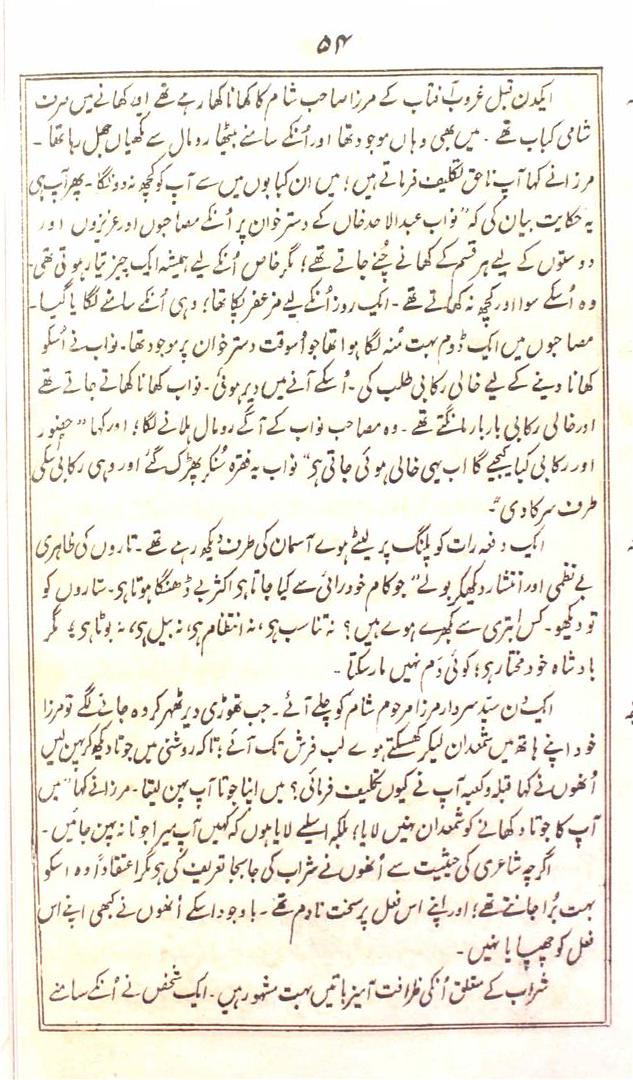 ۵۴
ایکدن قبل غروب آفتاب کے مرزا صاحب شام کا کھانا کھا رہے تھے اور کھانے میں صرف
شامی کباب تھے ۔ میں بھی وہاں موجود تھا اور اُنکے سامنے بیٹھا رومال سے مکھیاں جھل رہا تھا ۔
مرزا نے کہا آپ ناحق تکلیف فرماتے ہیں ؛ میں ان کبابوں میں سے آپ کو کچھ نہ دونگا ۔ پھر آپ ہی
یہ حکایت بیان کی کہ " نواب عبد الاحد خاں کے دسترخوان پر اُنکے مصاحبوں اور عزیزوں اور
دوستوں کے لیے ہر قسم کے کھانے چُنے جاتے تھے ؛ مگر خاص اُنکے لیے ہمیشہ ایک چیز تیار ہوتی تھی ۔
وہ اُسکے سوا اور کچھ نہ کھاتے تھے ۔ ایک روز اُنکے لیے مزعفر پکا تھا ؛ وہی اُنکے سامنے لگایا گیا ۔
مصاحبوں میں ایک ڈوم بہت مُنہ لگا ہوا تھا جو اُسوقت دسترخوان پر موجود تھا ۔ نواب نے اُسکو
کھانا دینے کے لیے خالی رکابی طلب کی ۔ اُسکے آنے میں دیر ہوئی ۔ نواب کھانا کھاتے جاتے تھے
اور خالی رکابی بار بار مانگتے تھے ۔ وہ مصاحب نواب کے آگے رومال ہلانے لگا ؛ اور کہا " حضور
اور رکابی کیا کیجیے گا اب یہی خالی ہوئی جاتی ہی " نواب یہ فقرہ سُنکر پھڑک گئے اور وہی رکابی اُسکی
طرف سرکا دی "
ایک دفعہ رات کو پلنگ پر لیٹے ہوے آسمان کی طرف دیکھ رہے تھے ۔ تاروں کی ظاہری
بے نظمی اور انتشار دیکھکر بولے " جو کام خود رائی سے کیا جاتا ہی اکثر بے ڈھنگا ہوتا ہی ۔ ستاروں کو
تو دیکھو ۔ کس ابتری سے بکھرے ہوے ہیں ؟ نہ تناسب ہی ، نہ انتظام ہی ، نہ بیل ہی ، نہ بوٹا ہی ؛ مگر
بادشاہ خود مختار ہی ؛ کوئی دَم نہیں مار سکتا ۔
ایک دن سید سردار مرزا مرحوم شام کو چلے آئے ۔ جب تھوڑی دیر ٹھہر کر وہ جانے لگے تو مرزا
خود اپنے ہاتھ میں شمعدان لیکر کھسکتے ہوے لب فرش تک آئے ؛ تاکہ روشنی میں جوتا دیکھ کر پہن لیں
اُنھوں نے کہا قبلہ و کعبہ آپ نے کیوں تکلیف فرمائی ؟ میں اپنا جوتا آپ پہن لیتا ۔ مرزا نے کہا " میں
آپ کا جوتا دکھانے کو شمعدان نہیں لایا ؛ بلکہ اسلیے لایا ہوں کہ کہیں آپ میرا جوتا نہ پہن جائیں ۔
اگرچہ شاعری کی حیثیت سے اُنھوں نے شراب کی جابجا تعریف کی ہی مگر اعتقاداً وہ اسکو
بہت بُرا جانتے تھے ؛ اور اپنے اس فعل پر سخت نادم تھے ۔ باوجود اسکے اُنھوں نے کبھی اپنے اس
فعل کو چھپایا نہیں ۔
شراب کے متعلق اُنکی ظرافت آمیز باتیں بہت مشہور ہیں ۔ ایک شخص نے اُنکے سامنے